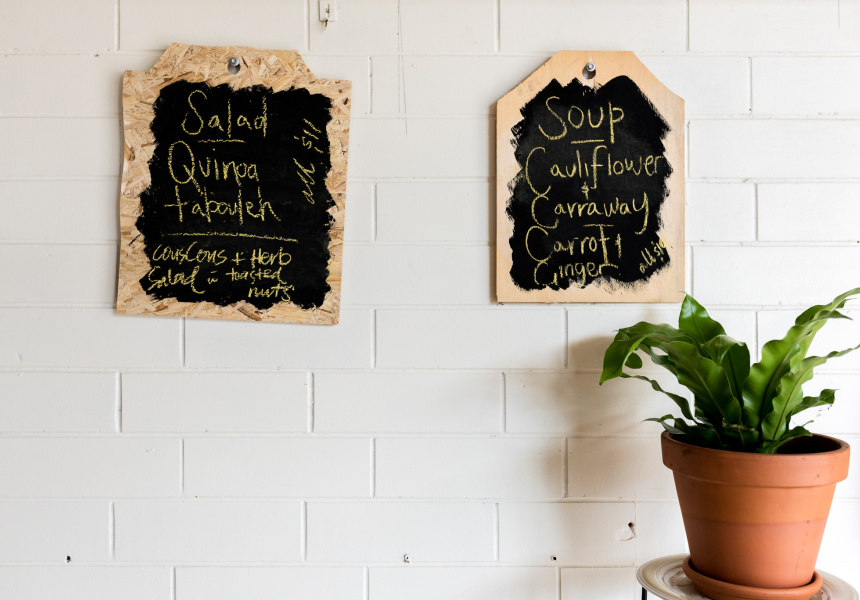 Salad
Quinoa
tabouleh
couscous + Herb
Salad w toasted
nuts
all $11
Soup
Cauliflower
&
Carraway
Carrot +
Ginger